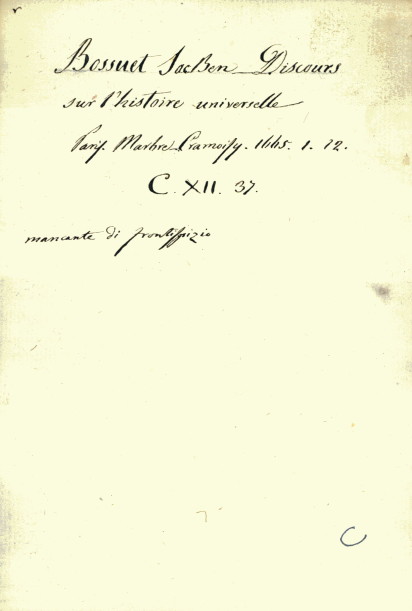 Bossuet Jac Ben Discours
sur l'histoire universelle
Paris. Marbre Cramoisy. 1665. 1. 12.
C. XII. 37.
mancante di frontispizio
C